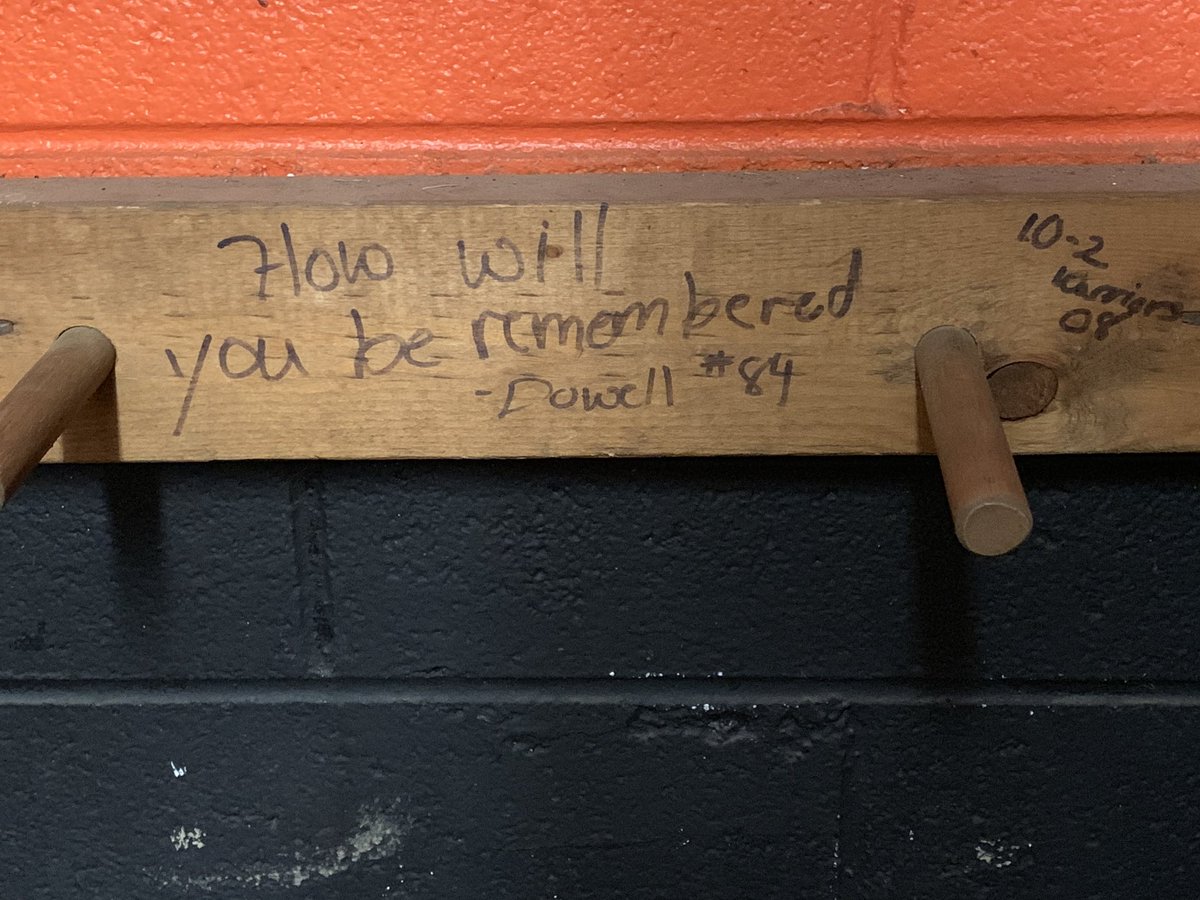 How will
you be remembered
-Dowell #84
10-2
Warriors
08